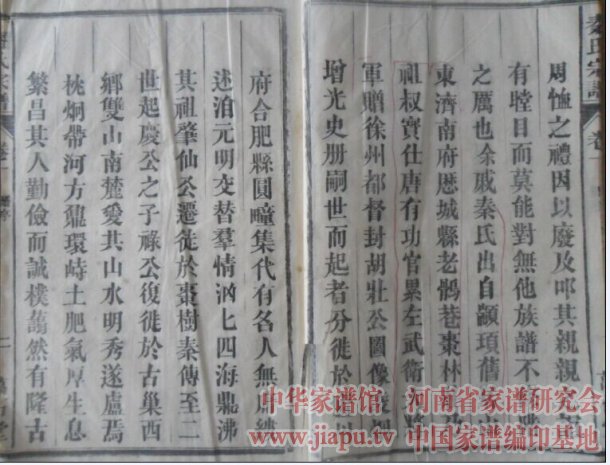 秦氏宗譜
卷一
周恤之禮因以廢及叩其親親
有瞠目而莫能對無他族譜不
之厲也余戚秦氏出自顓頊舊
東濟南府歷城縣老鸛巷棗林
祖叔寳仕唐有功官累左武衛
軍贈徐州都督封胡壯公圖像
增光史册嗣世而起者分徙於
府合肥縣圓疃集代有各人無
述洎元明交替羣情汹七四海鼎沸
其祖肇仙公遷徙於棗樹秦傳至二
世起慶公之子祿公復徙於古巢西
鄉雙山南麓愛其山水明秀遂廬焉
枕烔帶河方龍環峙土肥氣厚生息
繁昌其人勤儉而誠樸藹然有隆古
氏宗譜
卷一
中华家谱馆 河南省家谱研究会
www.jiapu.tv 中国家谱编印基地